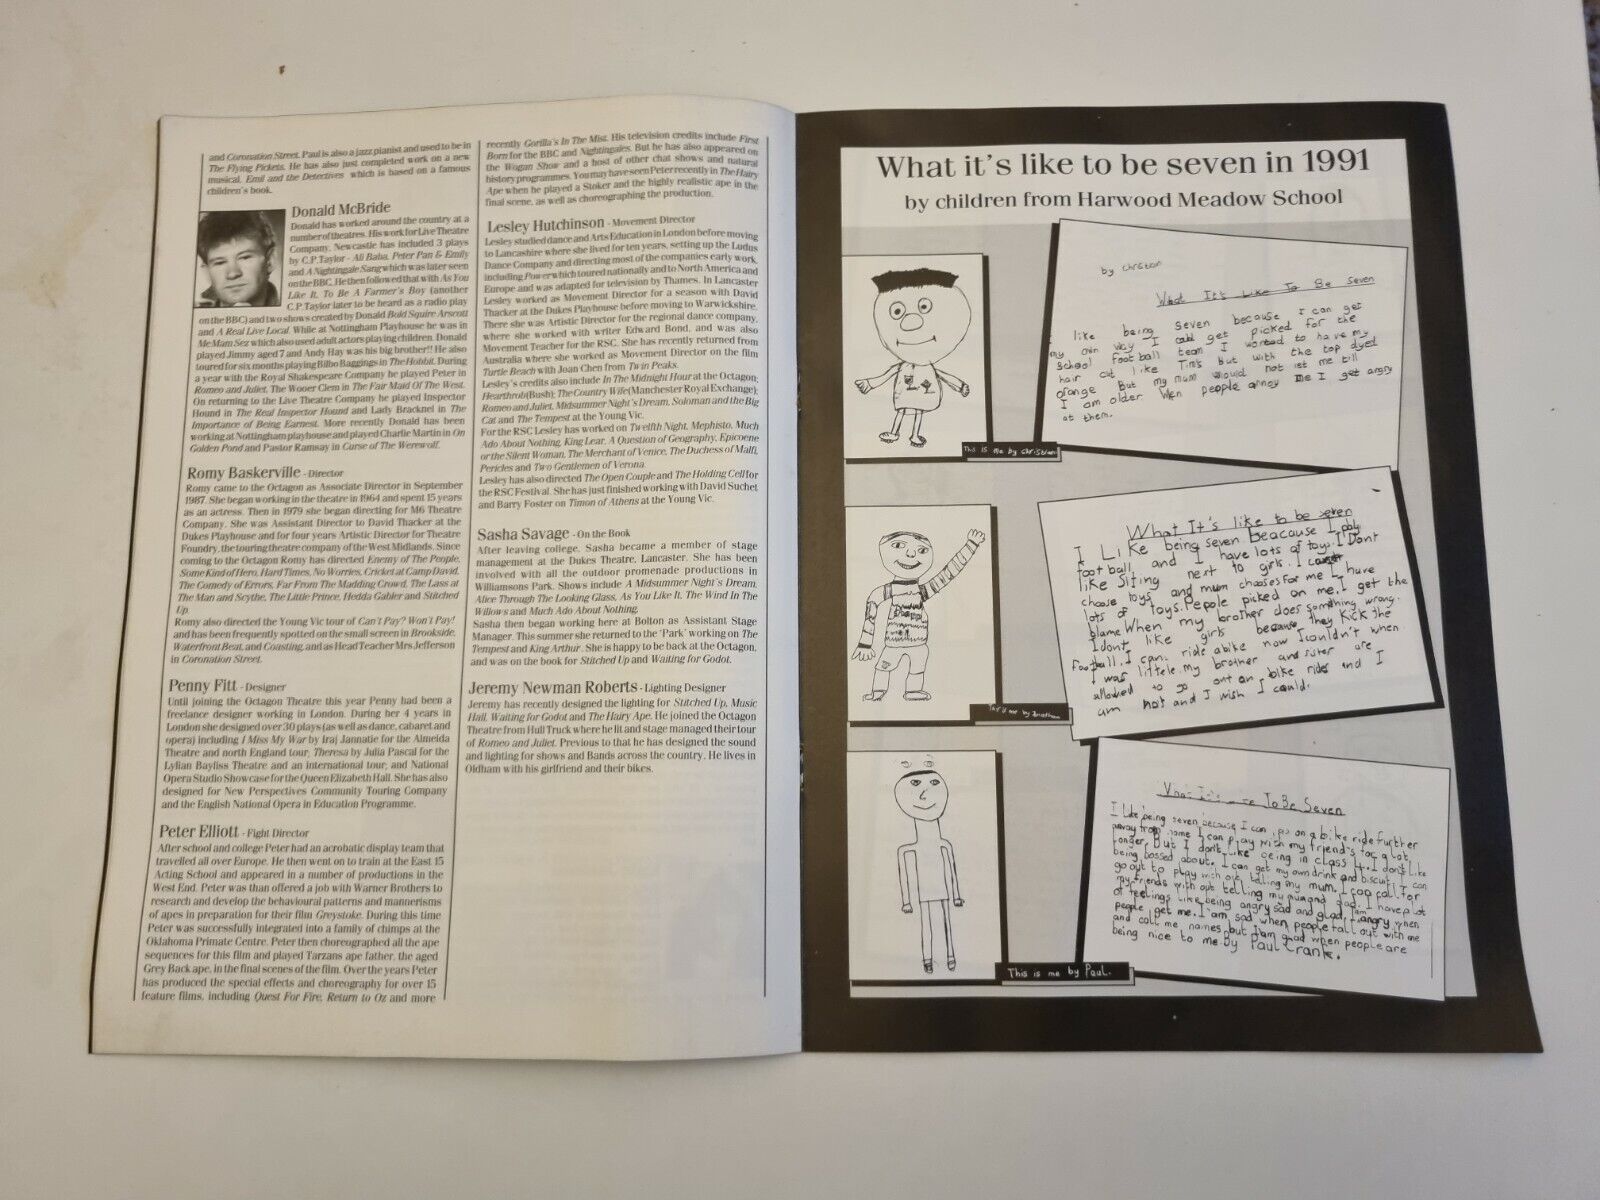 and Coronation Street. Paul is also a jazz pianist and used to be in
The Flying Pickets. He has also just completed work on a new
musical, Emil and the Detectives which is based on a famous
children's book.
Donald McBride
Donald has worked around the country at a
number of theatres. His work for Live Theatre
Company, Newcastle has included 3 plays
by C.P.Taylor - Ali Baba, Peter Pan & Emily
and A Nightingale Sang which was later seen
on the BBC. He then followed that with As You
Like It, To Be A Farmer's Boy (another
C.P.Taylor later to be heard as a radio play
on the BBC) and two shows created by Donald Bold Squire Arscott
and A Real Live Local. While at Nottingham Playhouse he was in
Me Mam Sez which also used adult actors playing children. Donald
played Jimmy aged 7 and Andy Hay was his big brother!! He also
toured for six months playing Bilbo Baggings in The Hobbit. During
a year with the Royal Shakespeare Company he played Peter in
Romeo and Juliet, The Wooer Clem in The Fair Maid Of The West.
On returning to the Live Theatre Company he played Inspector
Hound in The Real Inspector Hound and Lady Bracknel in The
Importance of Being Earnest. More recently Donald has been
working at Nottingham playhouse and played Charlie Martin in On
Golden Pond and Pastor Ramsay in Curse of The Werewolf.
Romy Baskerville - Director
Romy came to the Octagon as Associate Director in September
1987. She began working in the theatre in 1964 and spent 15 years
as an actress. Then in 1979 she began directing for M6 Theatre
Company. She was Assistant Director to David Thacker at the
Dukes Playhouse and for four years Artistic Director for Theatre
Foundry, the touring theatre company of the West Midlands. Since
coming to the Octagon Romy has directed Enemy of The People,
Some Kind of Hero, Hard Times, No Worries, Cricket at Camp David,
The Comedy of Errors, Far From The Madding Crowd, The Lass at
The Man and Scythe, The Little Prince, Hedda Gabler and Stitched
Up.
Romy also directed the Young Vic tour of Can't Pay? Won't Pay!
and has been frequently spotted on the small screen in Brookside,
Waterfront Beat, and Coasting, and as Head Teacher Mrs Jefferson
in Coronation Street.
Penny Fitt - Designer
Until joining the Octagon Theatre this year Penny had been a
freelance designer working in London. During her 4 years in
London she designed over 30 plays (as well as dance, cabaret and
opera) including I Miss My War by Iraj Jannatie for the Almeida
Theatre and north England tour, Theresa by Julia Pascal for the
Lylian Bayliss Theatre and an international tour, and National
Opera Studio Showcase for the Queen Elizabeth Hall. She has also
designed for New Perspectives Community Touring Company
and the English National Opera in Education Programme.
Peter Elliott - Fight Director
After school and college Peter had an acrobatic display team that
travelled all over Europe. He then went on to train at the East 15
Acting School and appeared in a number of productions in the
West End. Peter was than offered a job with Warner Brothers to
research and develop the behavioural patterns and mannerisms
of apes in preparation for their film Greystoke. During this time
Peter was successfully integrated into a family of chimps at the
Oklahoma Primate Centre. Peter then choreographed all the ape
sequences for this film and played Tarzans ape father, the aged
Grey Back ape, in the final scenes of the film. Over the years Peter
has produced the special effects and choreography for over 15
feature films, including Quest For Fire, Return to Oz and more
recently Gorilla's In The Mist. His television credits include First
Born for the BBC and Nightingales. But he has also appeared on
the Wogan Show and a host of other chat shows and natural
history programmes. You may have seen Peter recently in The Hairy
Ape when he played a Stoker and the highly realistic ape in the
final scene, as well as choreographing the production.
Lesley Hutchinson - Movement Director
Lesley studied dance and Arts Education in London before moving
to Lancashire where she lived for ten years, setting up the Ludus
Dance Company and directing most of the companies early work,
including Power which toured nationally and to North America and
Europe and was adapted for television by Thames. In Lancaster
Lesley worked as Movement Director for a season with David
Thacker at the Dukes Playhouse before moving to Warwickshire.
There she was Artistic Director for the regional dance company,
where she worked with writer Edward Bond, and was also
Movement Teacher for the RSC. She has recently returned from
Australia where she worked as Movement Director on the film
Turtle Beach with Joan Chen from Twin Peaks.
Lesley's credits also include In The Midnight Hour at the Octagon;
Heartthrob (Bush); The Country Wife (Manchester Royal Exchange);
Romeo and Juliet, Midsummer Night's Dream, Soloman and the Big
Cat and The Tempest at the Young Vic.
For the RSC Lesley has worked on Twelfth Night, Mephisto, Much
Ado About Nothing, King Lear, A Question of Geography, Epicoene
or the Silent Woman, The Merchant of Venice, The Duchess of Malfi,
Pericles and Two Gentlemen of Verona.
Lesley has also directed The Open Couple and The Holding Cell for
the RSC Festival. She has just finished working with David Suchet
and Barry Foster on Timon of Athens at the Young Vic.
Sasha Savage - On the Book
After leaving college, Sasha became a member of stage
management at the Dukes Theatre, Lancaster. She has been
involved with all the outdoor promenade productions in
Williamsons Park. Shows include A Midsummer Night's Dream,
Alice Through The Looking Glass, As You Like It, The Wind In The
Willows and Much Ado About Nothing.
Sasha then began working here at Bolton as Assistant Stage
Manager. This summer she returned to the 'Park' working on The
Tempest and King Arthur. She is happy to be back at the Octagon,
and was on the book for Stitched Up and Waiting for Godot.
Jeremy Newman Roberts - Lighting Designer
Jeremy has recently designed the lighting for Stitched Up, Music
Hall, Waiting for Godot and The Hairy Ape. He joined the Octagon
Theatre from Hull Truck where he lit and stage managed their tour
of Romeo and Juliet. Previous to that he has designed the sound
and lighting for shows and Bands across the country. He lives in
Oldham with his girlfriend and their bikes.
What it's like to be seven in 1991
by children from Harwood Meadow School
by christian
What It's Like To Be Seven
like being seven because I can get
my own way I get picked for the
School football team I wonted to have my
hair cut like Tim's But with the top dyed
orange But my mum would not let me till
I am older Wen people annoy me I get angry
at them.
This is me by christian
What It's like to be seven
I Like being seven beacause I play
football and I have lots of toys. I Dont
like siting next to girls. I
choose toys and mum chooses for me I have
lots of toys. People picked on me. I get the
blame When my brother does something wrong.
I dont like girls because they kick the
football. I can ride abike now I couldn't when
I was littele. my brother and sister are
allowed to go out on bike rides and I
am not and I wish I could.
This is me by Jonathan
What It's To Be Seven
I like being seven because I can go on a bike ride further
away from home I can play with my friends for a lot
longer. But I don't like being in class 4. I don't like
being bossed about. I can get my own drink and biscuit I can
go out to play with out telling my mum. I can call for
my friends with out telling my mum and dad. I have a lot
of feelings like being angry sad and glad, I am angry when
people get me. I am sad when people fall out with me
and call me names but I am glad when people are
being nice to me. By Paul Crank.
This is me by Paul.